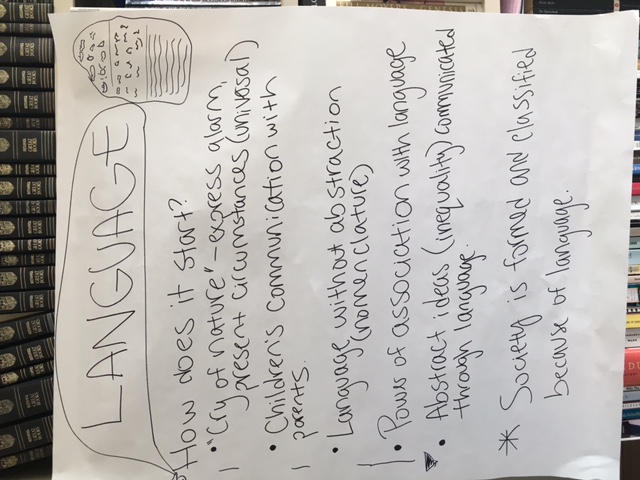 LANGUAGE
How does it start?
• "Cry of nature" - express alarm,
present circumstances (universal)
• Children's communication with
parents.
• Language without abstraction
(nomenclature)
• Power of association with language
• Abstract ideas (inequality) communicated
through language.
* Society is formed and classified
because of language.